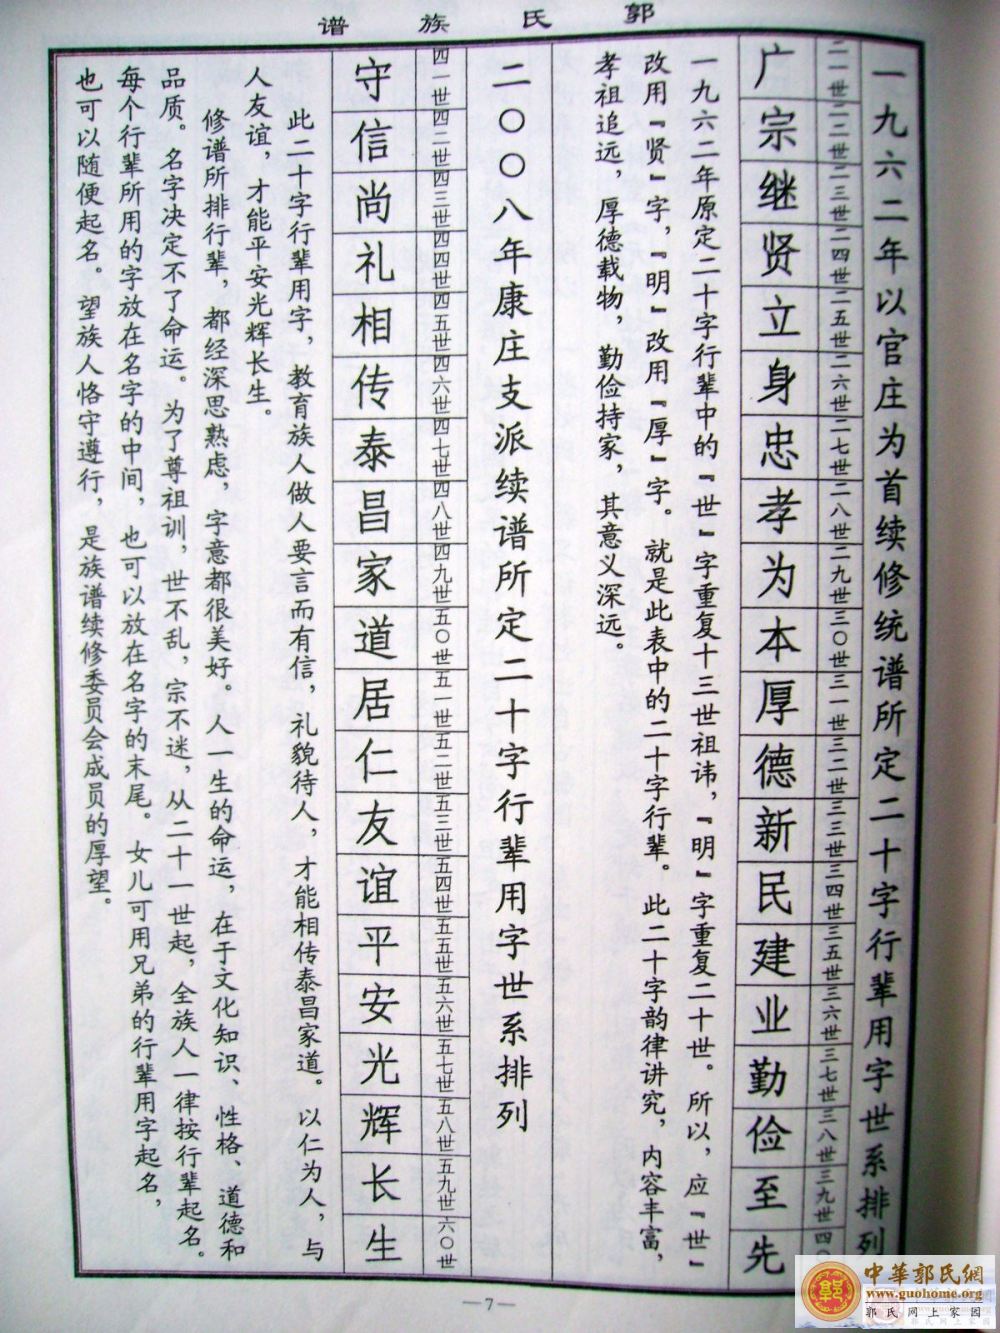 郭氏族谱
一九六二年以官庄为首续修统谱所定二十字行辈用字世系排列
二一世二二世二三世二四世二五世二六世二七世二八世二九世三〇世三一世三二世三三世三四世三五世三六世三七世三八世三九世四〇
广宗继贤立身忠孝为本厚德新民建业勤俭至先
一九六二年原定二十字行辈中的『世』字重复十三世祖讳，『明』字重复二十世。所以，应『世』
改用『贤』字，『明』改用『厚』字。就是此表中的二十字行辈。此二十字韵律讲究，内容丰富，
孝祖追远，厚德载物，勤俭持家，其意义深远。
二〇〇八年康庄支派续谱所定二十字行辈用字世系排列
四一世四二世四三世四四世四五世四六世四七世四八世四九世五〇世五一世五二世五三世五四世五五世五六世五七世五八世五九世六〇世
守信尚礼相传泰昌家道居仁友谊平安光辉长生
此二十字行辈用字，教育族人做人要言而有信，礼貌待人，才能相传泰昌家道。以仁为人，与
人友谊，才能平安光辉长生。
修谱所排行辈，都经深思熟虑，字意都很美好。人一生的命运，在于文化知识、性格、道德和
品质。名字决定不了命运。为了尊祖训，世不乱，宗不迷，从二十一世起，全族人一律按行辈起名。
每个行辈所用的字放在名字的中间，也可以放在名字的末尾。女儿可用兄弟的行辈用字起名，
也可以随便起名。望族人恪守遵行，是族谱续修委员会成员的厚望。
—7—
中華郭氏網
www.guohome.org
郭氏网上家园